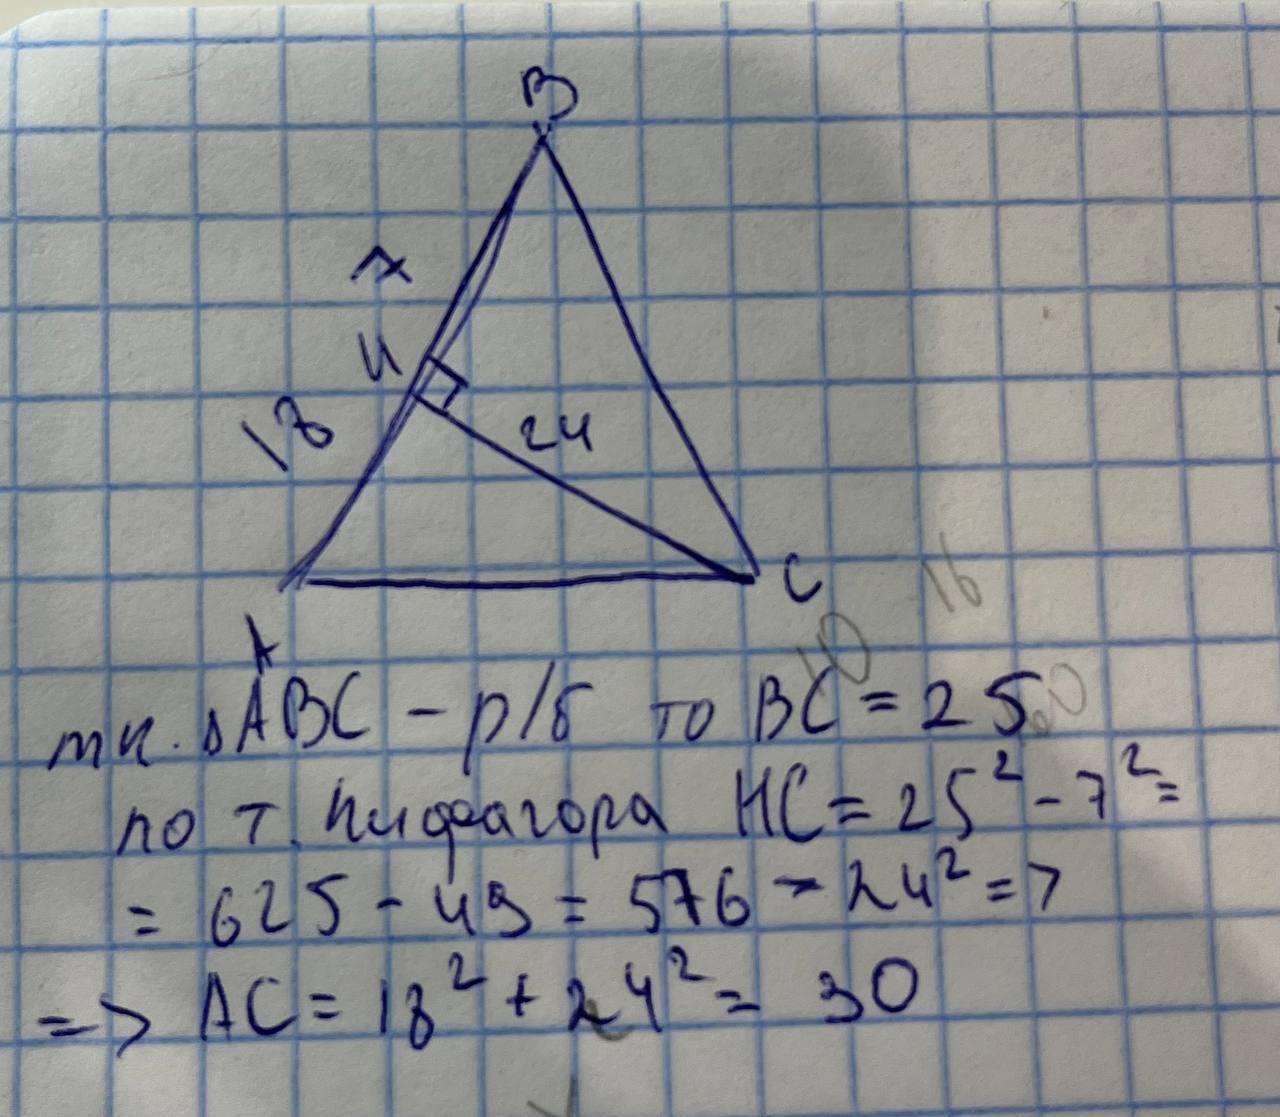 B
7
H
18
24
A
C
16
10
тк. △ABC - р/б то BC = 25
по т. Пифагора HC = 25² - 7² =
= 625 - 49 = 576 - 24² =>
=> AC = 18² + 24² = 30